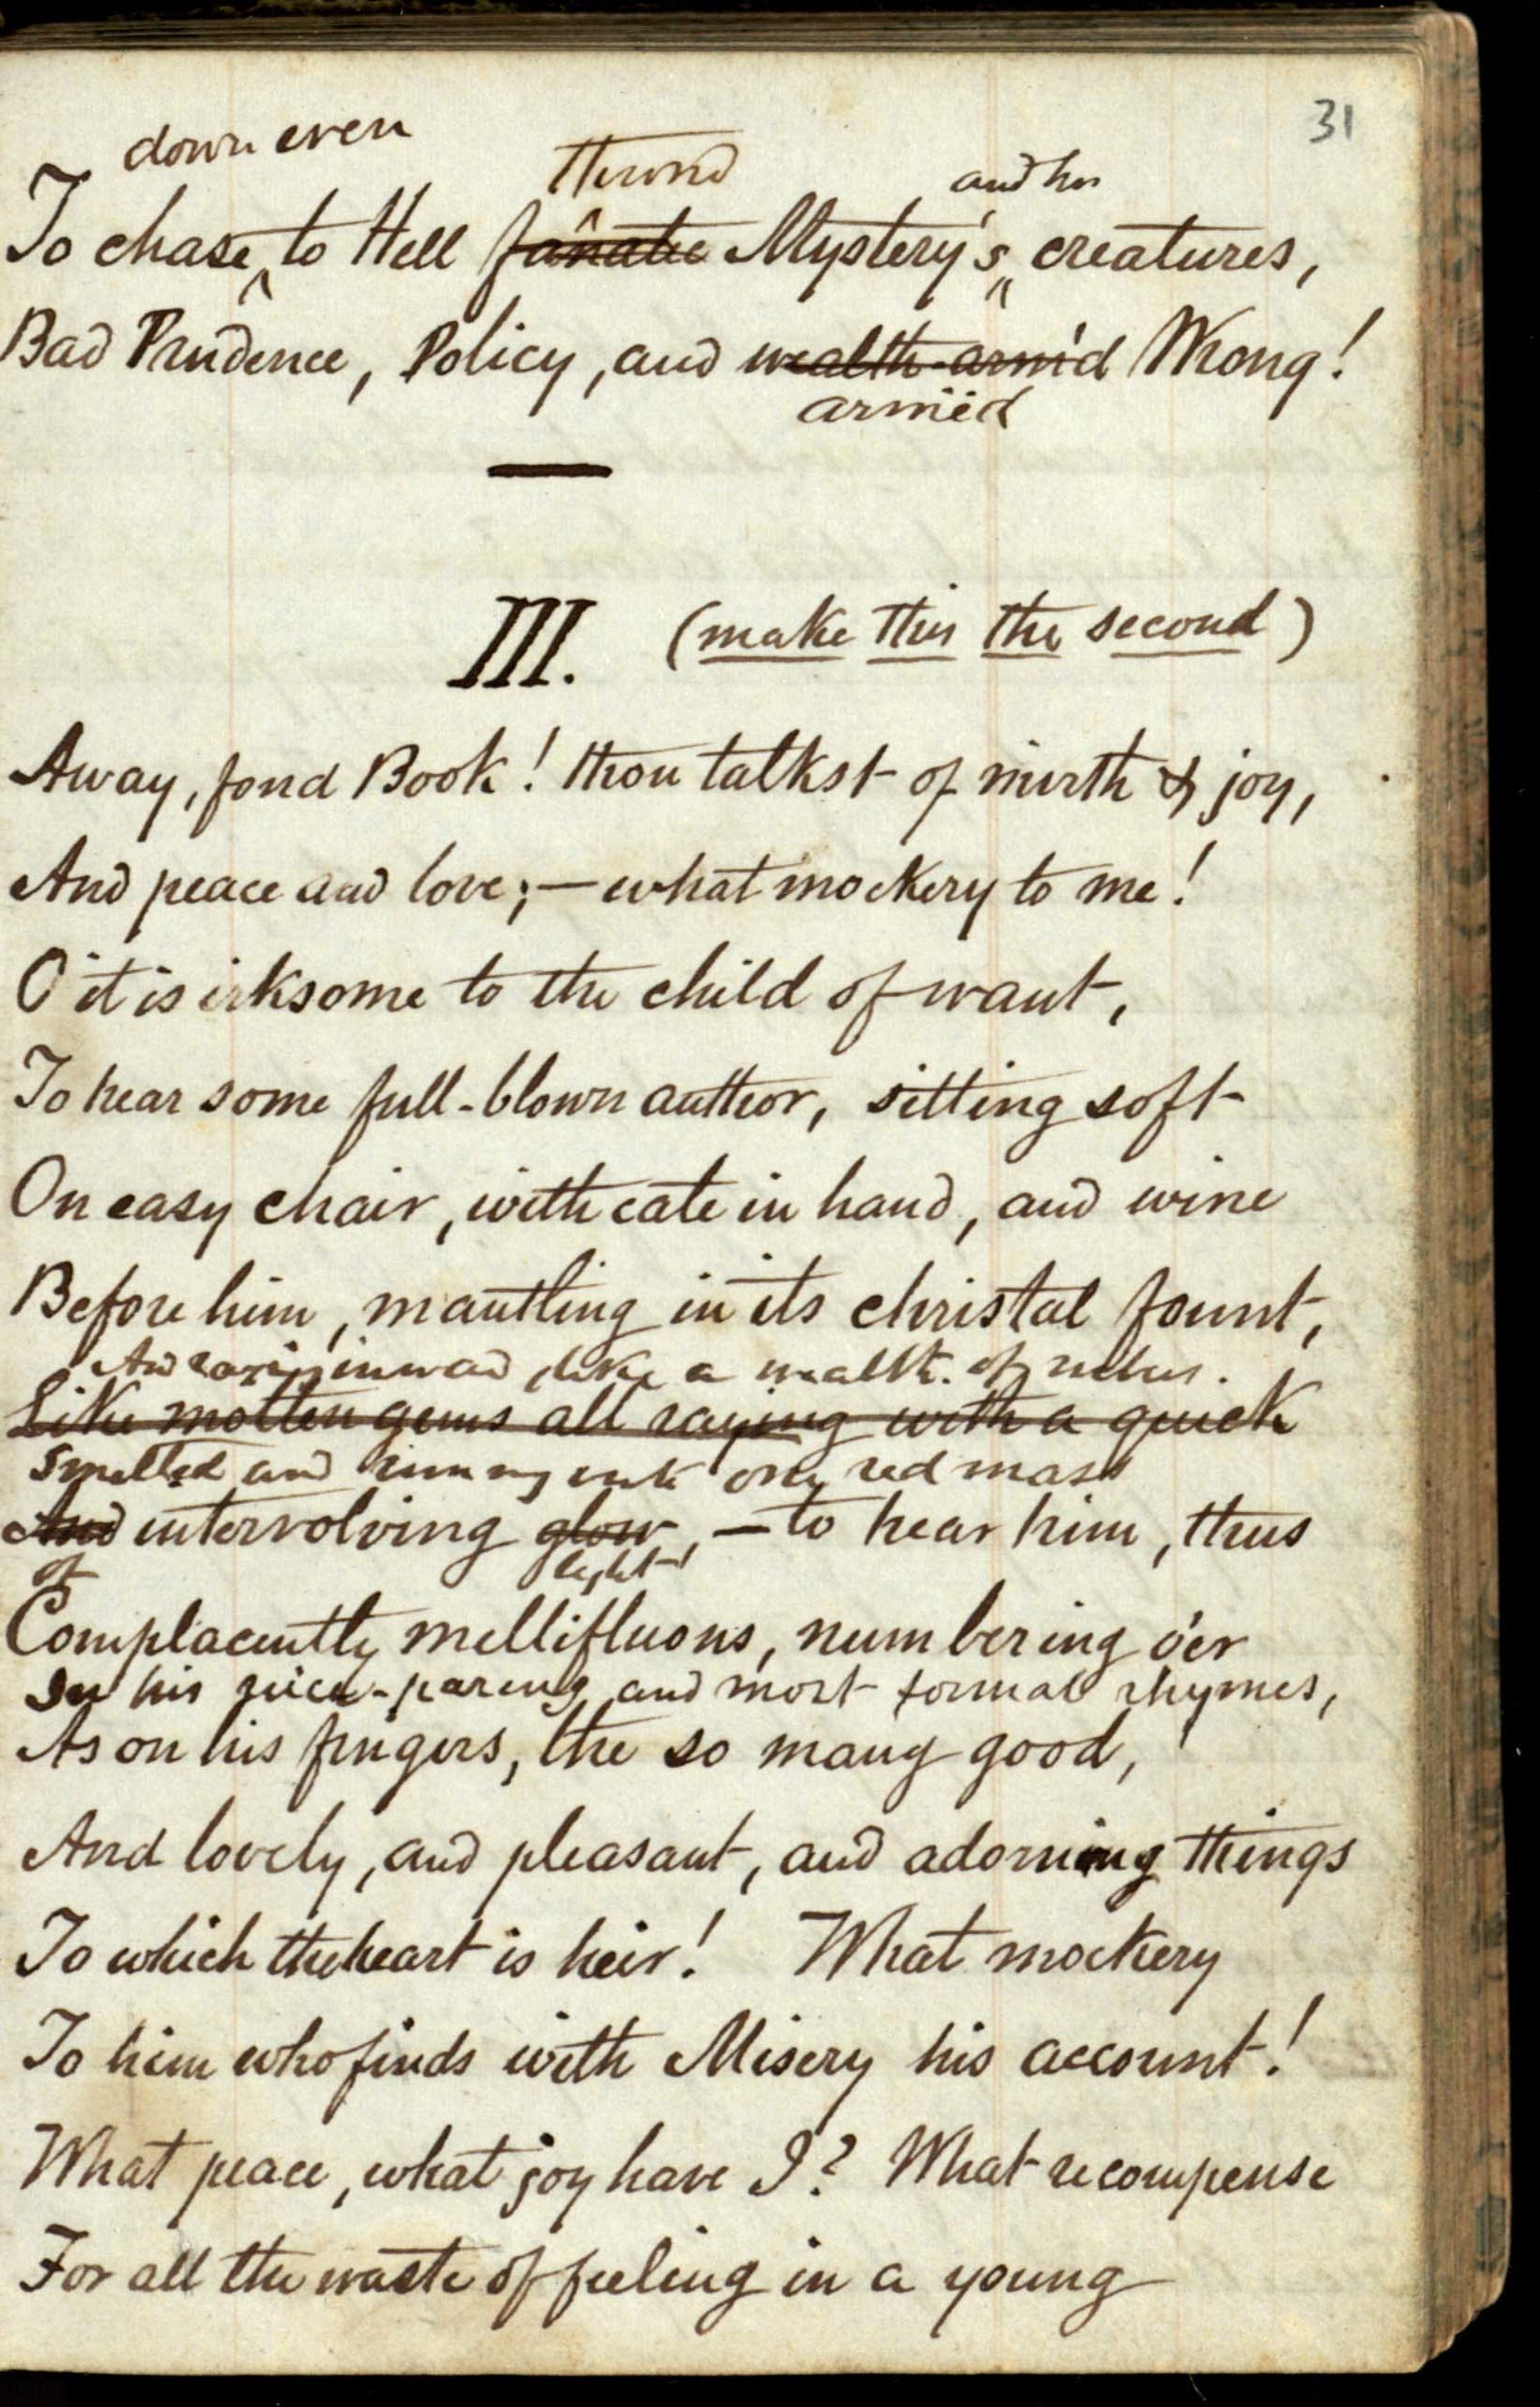 31
down even
thron'd
and her
To chase to Hell fanatic Mystery's creatures,
Bad Prudence, Policy, and wealth-arm'd Wrong!
armëd
III. (make this the second)
Away, fond Book! thou talkst of mirth & joy,
And peace and love; — what mockery to me!
O it is irksome to the child of want,
To hear some full-blown author, sitting soft
On easy chair, with cate in hand, and wine
Before him, mantling in its christal fount,
And inward, like a wealth of rubies
Like molten gems all raying with a quick
Smelted and running into one red mass
And intervolving glow, — to hear him, thus
of
light
Complacently mellifluous, numbering o'er
In his and most formal rhymes,
As on his fingers, the so many good,
And lovely, and pleasant, and adorning things
To which the heart is heir! What mockery
To him who finds with Misery his account!
What peace, what joy have I? What recompense
For all the waste of feeling in a young